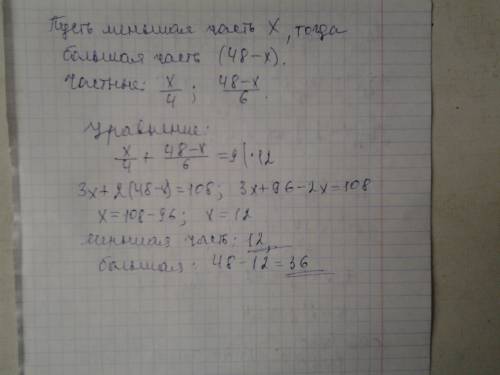 Пусть меньшая часть x, тогда
большая часть (48-x).
Частные: x/4 ; (48-x)/6.
Уравнение:
x/4 + (48-x)/6 = 9 | · 12
3x+2(48-x)=108; 3x+96-2x=108
x=108-96; x=12
меньшая часть: 12,
большая: 48-12=36